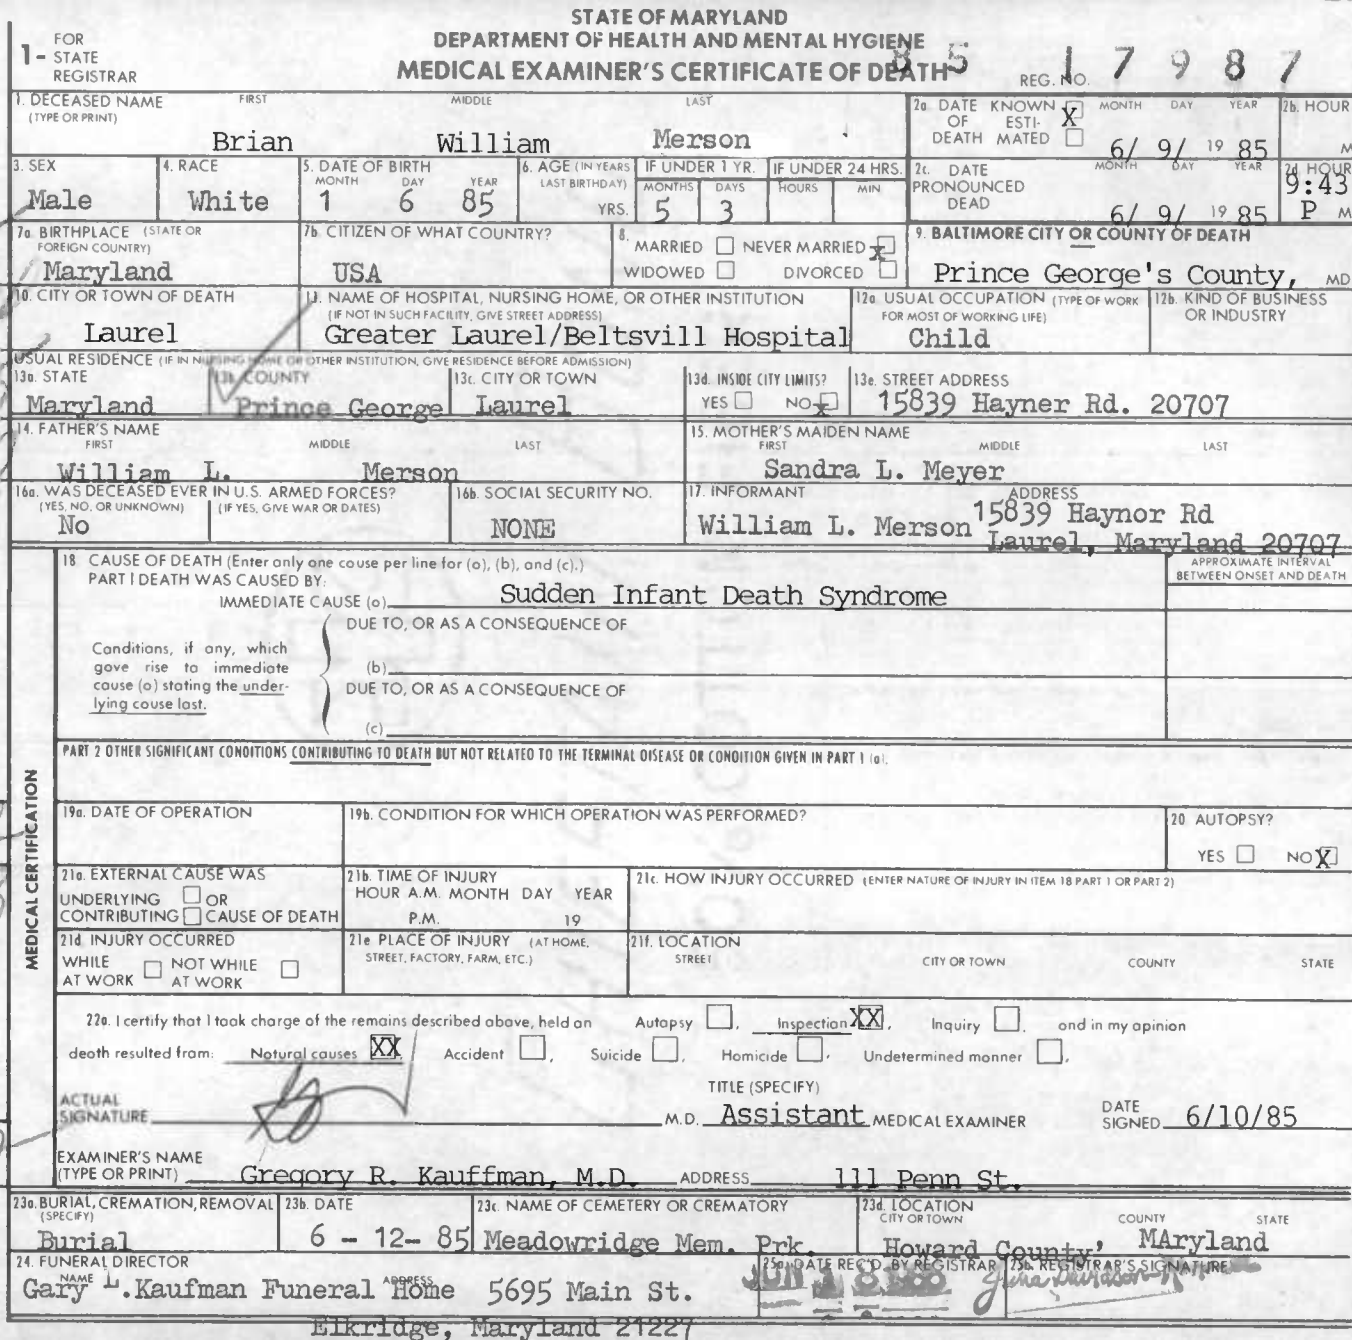 STATE OF MARYLAND
DEPARTMENT OF HEALTH AND MENTAL HYGIENE
MEDICAL EXAMINER'S CERTIFICATE OF DEATH
1- FOR STATE REGISTRAR
REG. NO. 85 17987
1. DECEASED NAME (TYPE OR PRINT) FIRST MIDDLE LAST
Brian William Merson
2a. DATE OF DEATH KNOWN X ESTIMATED MONTH DAY YEAR
6/ 9/ 19 85
2b. HOUR M
3. SEX
Male
4. RACE
White
5. DATE OF BIRTH MONTH DAY YEAR
1 6 85
6. AGE (IN YEARS LAST BIRTHDAY) YRS.
IF UNDER 1 YR. MONTHS DAYS
5 3
IF UNDER 24 HRS. HOURS MIN
2c. DATE PRONOUNCED DEAD MONTH DAY YEAR
6/ 9/ 19 85
2d HOUR
9:43 P M
7a. BIRTHPLACE (STATE OR FOREIGN COUNTRY)
Maryland
7b. CITIZEN OF WHAT COUNTRY?
USA
8. MARRIED NEVER MARRIED X
WIDOWED DIVORCED
9. BALTIMORE CITY OR COUNTY OF DEATH
Prince George's County, MD
10. CITY OR TOWN OF DEATH
Laurel
11. NAME OF HOSPITAL, NURSING HOME, OR OTHER INSTITUTION
(IF NOT IN SUCH FACILITY, GIVE STREET ADDRESS)
Greater Laurel/Beltsvill Hospital
12a. USUAL OCCUPATION (TYPE OF WORK FOR MOST OF WORKING LIFE)
Child
12b. KIND OF BUSINESS OR INDUSTRY
USUAL RESIDENCE (IF IN NURSING HOME OR OTHER INSTITUTION, GIVE RESIDENCE BEFORE ADMISSION)
13a. STATE
Maryland
13b. COUNTY
Prince George
13c. CITY OR TOWN
Laurel
13d. INSIDE CITY LIMITS?
YES NO X
13e. STREET ADDRESS
15839 Hayner Rd. 20707
14. FATHER'S NAME FIRST MIDDLE LAST
William L. Merson
15. MOTHER'S MAIDEN NAME FIRST MIDDLE LAST
Sandra L. Meyer
16a. WAS DECEASED EVER IN U.S. ARMED FORCES?
(YES, NO, OR UNKNOWN) (IF YES, GIVE WAR OR DATES)
No
16b. SOCIAL SECURITY NO.
NONE
17. INFORMANT ADDRESS
William L. Merson 15839 Haynor Rd
Laurel, Maryland 20707
MEDICAL CERTIFICATION
18 CAUSE OF DEATH (Enter only one cause per line for (a), (b), and (c).)
APPROXIMATE INTERVAL BETWEEN ONSET AND DEATH
PART I DEATH WAS CAUSED BY:
IMMEDIATE CAUSE (a) Sudden Infant Death Syndrome
DUE TO, OR AS A CONSEQUENCE OF
Conditions, if any, which gave rise to immediate cause (a) stating the underlying cause last.
(b)
DUE TO, OR AS A CONSEQUENCE OF
(c)
PART 2 OTHER SIGNIFICANT CONDITIONS CONTRIBUTING TO DEATH BUT NOT RELATED TO THE TERMINAL DISEASE OR CONDITION GIVEN IN PART 1 (a).
19a. DATE OF OPERATION
19b. CONDITION FOR WHICH OPERATION WAS PERFORMED?
20 AUTOPSY?
YES NO X
21a. EXTERNAL CAUSE WAS
UNDERLYING OR
CONTRIBUTING CAUSE OF DEATH
21b. TIME OF INJURY
HOUR A.M. MONTH DAY YEAR
P.M. 19
21c. HOW INJURY OCCURRED (ENTER NATURE OF INJURY IN ITEM 18 PART 1 OR PART 2)
21d INJURY OCCURRED
WHILE AT WORK NOT WHILE AT WORK
21e PLACE OF INJURY (AT HOME, STREET, FACTORY, FARM, ETC.)
21f. LOCATION
STREET CITY OR TOWN COUNTY STATE
22a. I certify that I took charge of the remains described above, held an Autopsy , Inspection XX, Inquiry , and in my opinion
death resulted from: Natural causes XX Accident , Suicide , Homicide , Undetermined manner .
ACTUAL SIGNATURE M.D.
TITLE (SPECIFY)
Assistant MEDICAL EXAMINER
DATE SIGNED 6/10/85
EXAMINER'S NAME (TYPE OR PRINT) Gregory R. Kauffman, M.D. ADDRESS 111 Penn St.
23a. BURIAL, CREMATION, REMOVAL (SPECIFY)
Burial
23b. DATE
6 - 12- 85
23c. NAME OF CEMETERY OR CREMATORY
Meadowridge Mem. Prk.
23d. LOCATION CITY OR TOWN COUNTY STATE
Howard County, MAryland
24. FUNERAL DIRECTOR
NAME ADDRESS
Gary L. Kaufman Funeral Home 5695 Main St.
Elkridge, Maryland 21227
25a. DATE REC'D. BY REGISTRAR
JUN
25b. REGISTRAR'S SIGNATURE